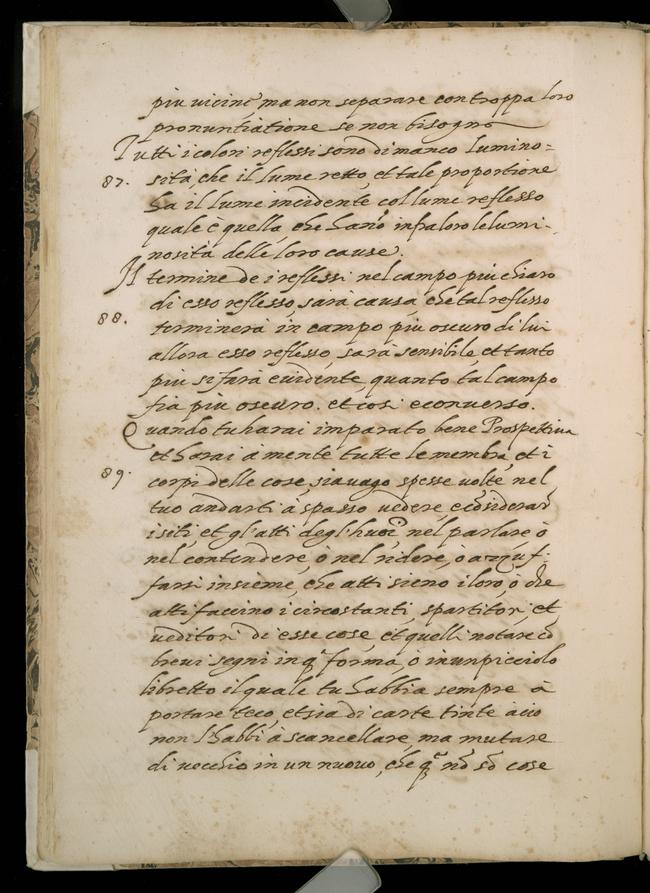 piu vicine ma non separare con troppa loro
pronuntiatione se non bisogna
Tutti i colori reflessi sono di manco lumino-
87. sità, che il lume retto, et tale proportione
ha il lume incidente col lume reflesso
quale è quella, che hano infra loro le lumi-
nosità delle loro cause.
Il termine de i reflessi nel campo piu chiaro
di esso reflesso, sarà causa, che tal reflesso
88. terminerà in campo piu oscuro di lui
allora esso reflesso, sarà sensibile, et tanto
piu si farà evidente, quanto tal campo
fia piu oscuro. et cosi econverso.
Quando tu harai imparato bene Prospettiva
et harai à mente tutte le membra, et i
89. corpi delle cose, sia vago spesse volte, nel
tuo andarti à spasso vedere, e cōsiderar
i siti, et gl'atti degl'huoi nel parlare ò
nel contendere, ò nel ridere, ò azzuf-
farsi insieme, che atti sieno i loro, ò che
atti faccino i circostanti, spartitori, et
veditori di esse cose, et quelli notare cō
brevi segni in q.a forma, ò in un picciolo
libretto il quale tu habbia sempre à
portare teco, et sia di carte tinte aciò
non l'habbi à scancellare, ma mutare
di vecchio in un nuovo, che q.e nō sō cose